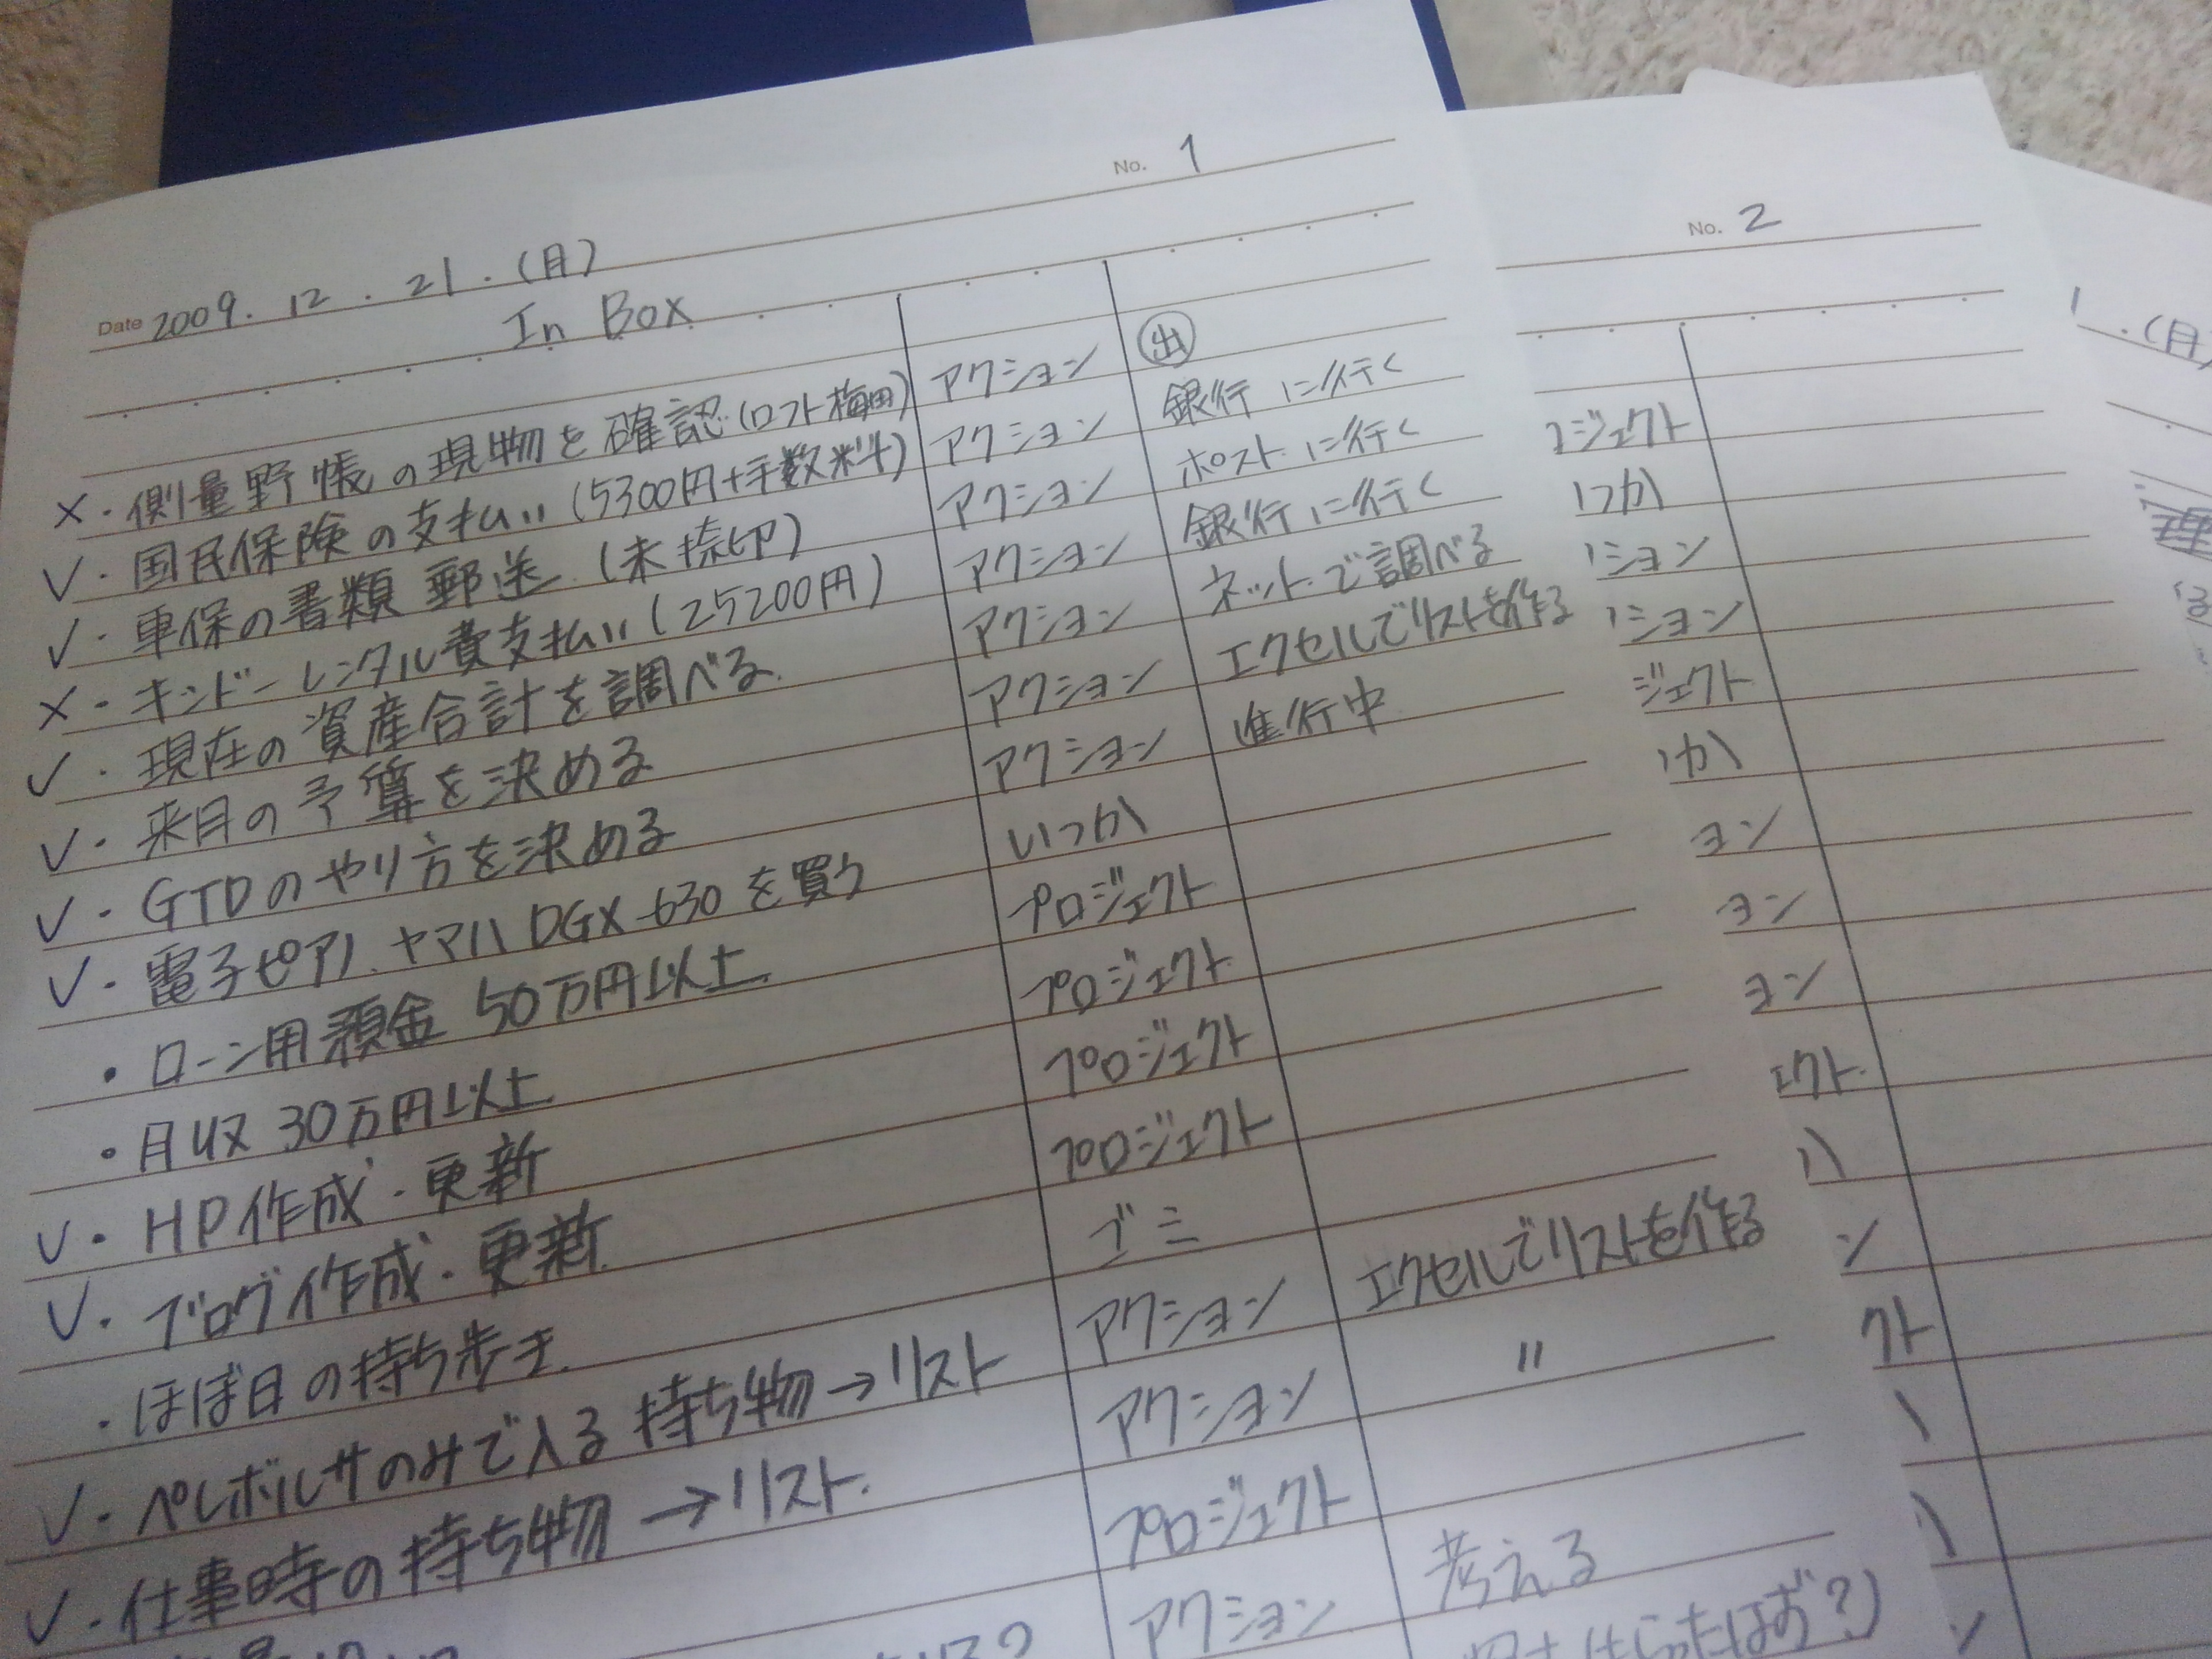 No. 1
Date 2009. 12. 21. (月)
In Box
×・側量野帳の現物を確認(ロフト梅田) アクション ㊄
✓・国民保険の支払い(5300円+手数料) アクション 銀行に行く
✓・車保の書類 郵送 (未捺印) アクション ポストに行く
×・キンドーレンタル費支払い(25200円) アクション 銀行に行く
✓・現在の資産合計を調べる. アクション ネットで調べる
✓・来月の予算を決める アクション エクセルでリストを作る
✓・GTDのやり方を決める アクション 進行中
✓・電子ピアノ ヤマハ DGX-630 を買う いつか
・ローン用預金 50万円以上. プロジェクト
・月収 30万円以上. プロジェクト
✓・HP作成・更新 プロジェクト
✓・ブログ作成・更新. プロジェクト
・ほぼ日の持ち歩き. ゴミ
✓・ペレボルサのみで入る持ち物→リスト アクション エクセルでリストを作る
✓・仕事時の持ち物→リスト. アクション 〃
プロジェクト
アクション 考える
はらったはず?)
No. 2
ジェクト
つか
ション
ション
ジェクト
か
ョン
ョン
ョン
ェクト.
ン
クト
1.(月)